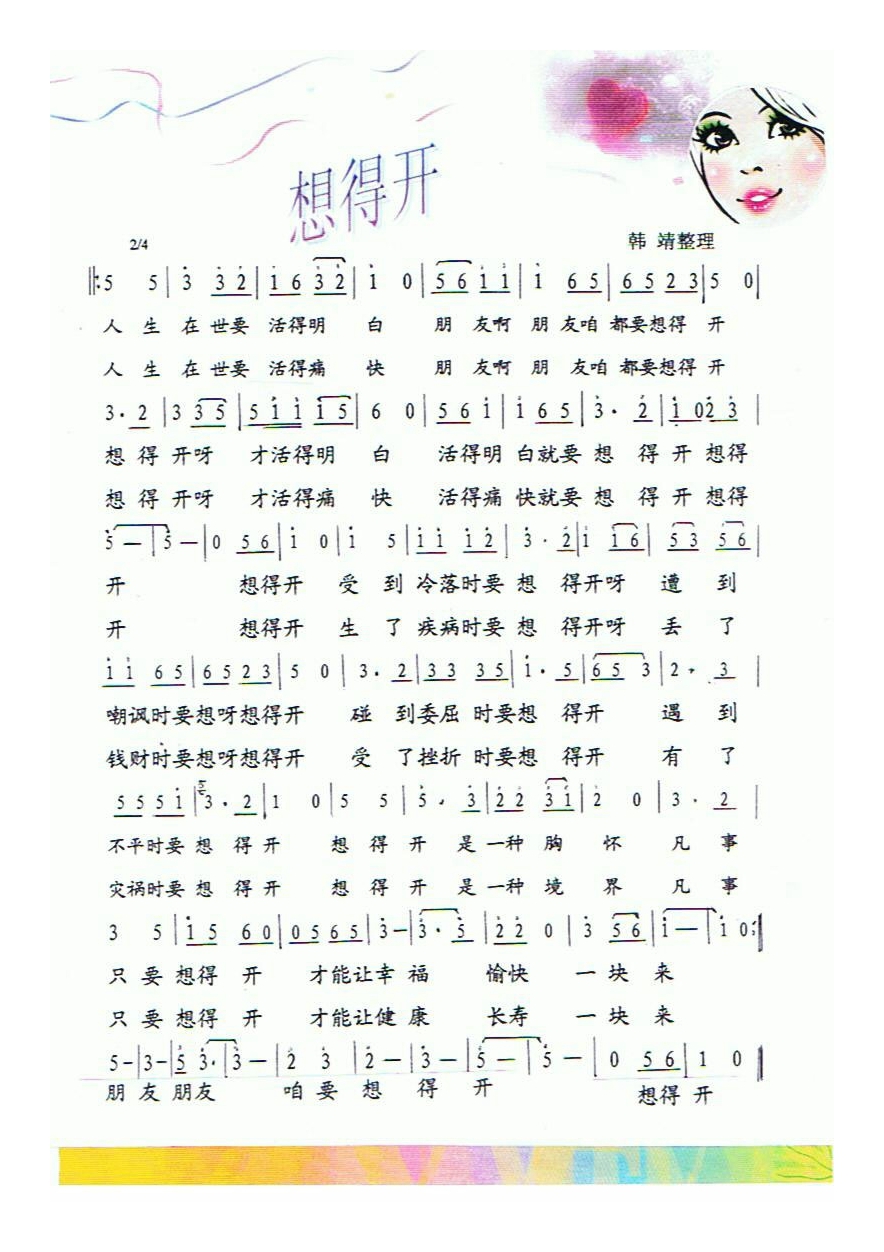 想得开
2/4 韩 靖整理
‖:5 5 | 3 3 2 | 1 6 3 2 | 1 0 | 5 6 1 1 | 1 6 5 | 6 5 2 3 | 5 0 |
人 生 在 世要 活得明 白 朋 友啊 朋 友咱 都要想得 开
人 生 在 世要 活得痛 快 朋 友啊 朋 友咱 都要想得 开
3· 2 | 3 3 5 | 5 1 1 1 5 | 6 0 | 5 6 1 | 1 6 5 | 3· 2 | 1 02 3 |
想 得 开呀 才活得明 白 活得明 白就要 想 得 开 想得
想 得 开呀 才活得痛 快 活得痛 快就要 想 得 开 想得
5 — | 5 — | 0 5 6 | 1 0 | 1 5 | 1 1 1 2 | 3· 2 | 1 1 6 | 5 3 5 6 |
开 想得开 受 到 冷落时要 想 得开呀 遭 到
开 想得开 生 了 疾病时要 想 得开呀 丢 了
1 1 6 5 | 6 5 2 3 | 5 0 | 3· 2 | 3 3 3 5 | 1· 5 | 6 5 3 | 2· 3 |
嘲讽时要想呀想得开 碰 到委屈 时要想 得开 遇 到
钱财时要想呀想得开 受 了挫折 时要想 得开 有 了
5 5 5 1 | 3· 2 | 1 0 | 5 5 | 5· 3 | 2 2 3 1 | 2 0 | 3· 2 |
不平时要 想 得 开 想 得 开 是 一种 胸 怀 凡 事
灾祸时要 想 得 开 想 得 开 是 一种 境 界 凡 事
3 5 | 1 5 6 0 | 0 5 6 5 | 3 — | 3· 5 | 2 2 0 | 3 5 6 | 1 — | 1 0 :‖
只 要 想得 开 才能让幸 福 愉快 一 块 来
只 要 想得 开 才能让健 康 长寿 一 块 来
5 - | 3 - | 5 3· | 3 — | 2 3 | 2 — | 3 — | 5 — | 5 — | 0 5 6 | 1 0 ‖
朋 友 朋友 咱 要 想 得 开 想得 开